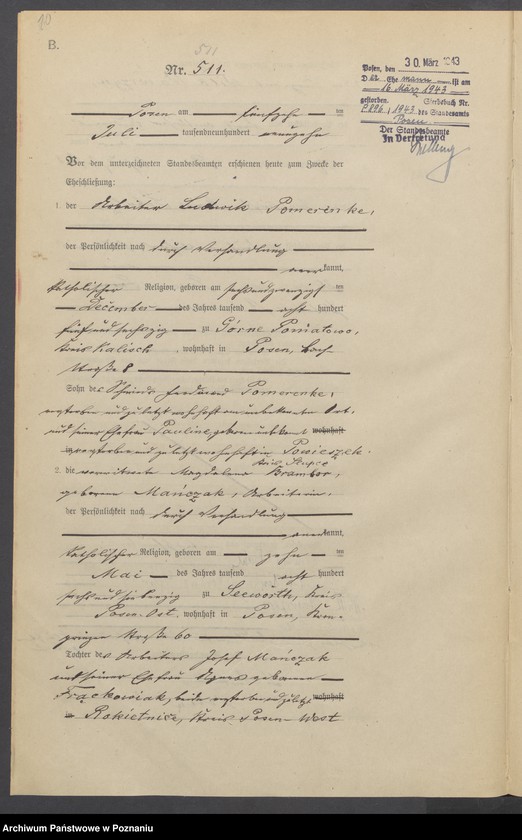 10
B.
511
Nr. 511.
Posen, den 30. März 1943
D Ehe mann ist am
16. März 1943
gestorben. Sterbebuch Nr.
896/1943 des Standesamts
Posen.
Der Standesbeamte
In Vertretung
Posen am fünfzehn ten
Juli tausendneunhundert neunzehn
Vor dem unterzeichneten Standesbeamten erschienen heute zum Zwecke der
Eheschließung:
1. der Arbeiter Ludwik Pomerenke,
der Persönlichkeit nach durch Verhandlung
anerkannt,
katholischer Religion, geboren am sechsundzwanzigsten
Dezember des Jahres tausend acht hundert
fünfundsechszig zu Górne Poniatowo,
Kreis Kalisch, wohnhaft in Posen, Bach-
straße 8
Sohn des Schmieds Ferdinand Pomerenke,
verstorben und zuletzt wohnhaft an unbekanntem Ort,
und seiner Ehefrau Pauline, geborene unbekannt wohnhaft
verstorben und zuletzt wohnhaft in Powieszek.
Kreis Slupce
2. die verwitwete Magdalena Brambor,
geborene Mańczak, Arbeiterin,
der Persönlichkeit nach durch Verhandlung
anerkannt,
katholischer Religion, geboren am zehn ten
Mai des Jahres tausend acht hundert
sechsundsiebzig zu Seewörth, Kreis
Posen-Ost, wohnhaft in Posen, Kron-
prinzen Straße 60
Tochter des Arbeiters Josef Mańczak
und seiner Ehefrau Agnes geborenen
Frąckowiak, beide verstorben und zuletzt wohnhaft
in Rokietnice, Kreis Posen-West
Archiwum Państwowe w Poznaniu